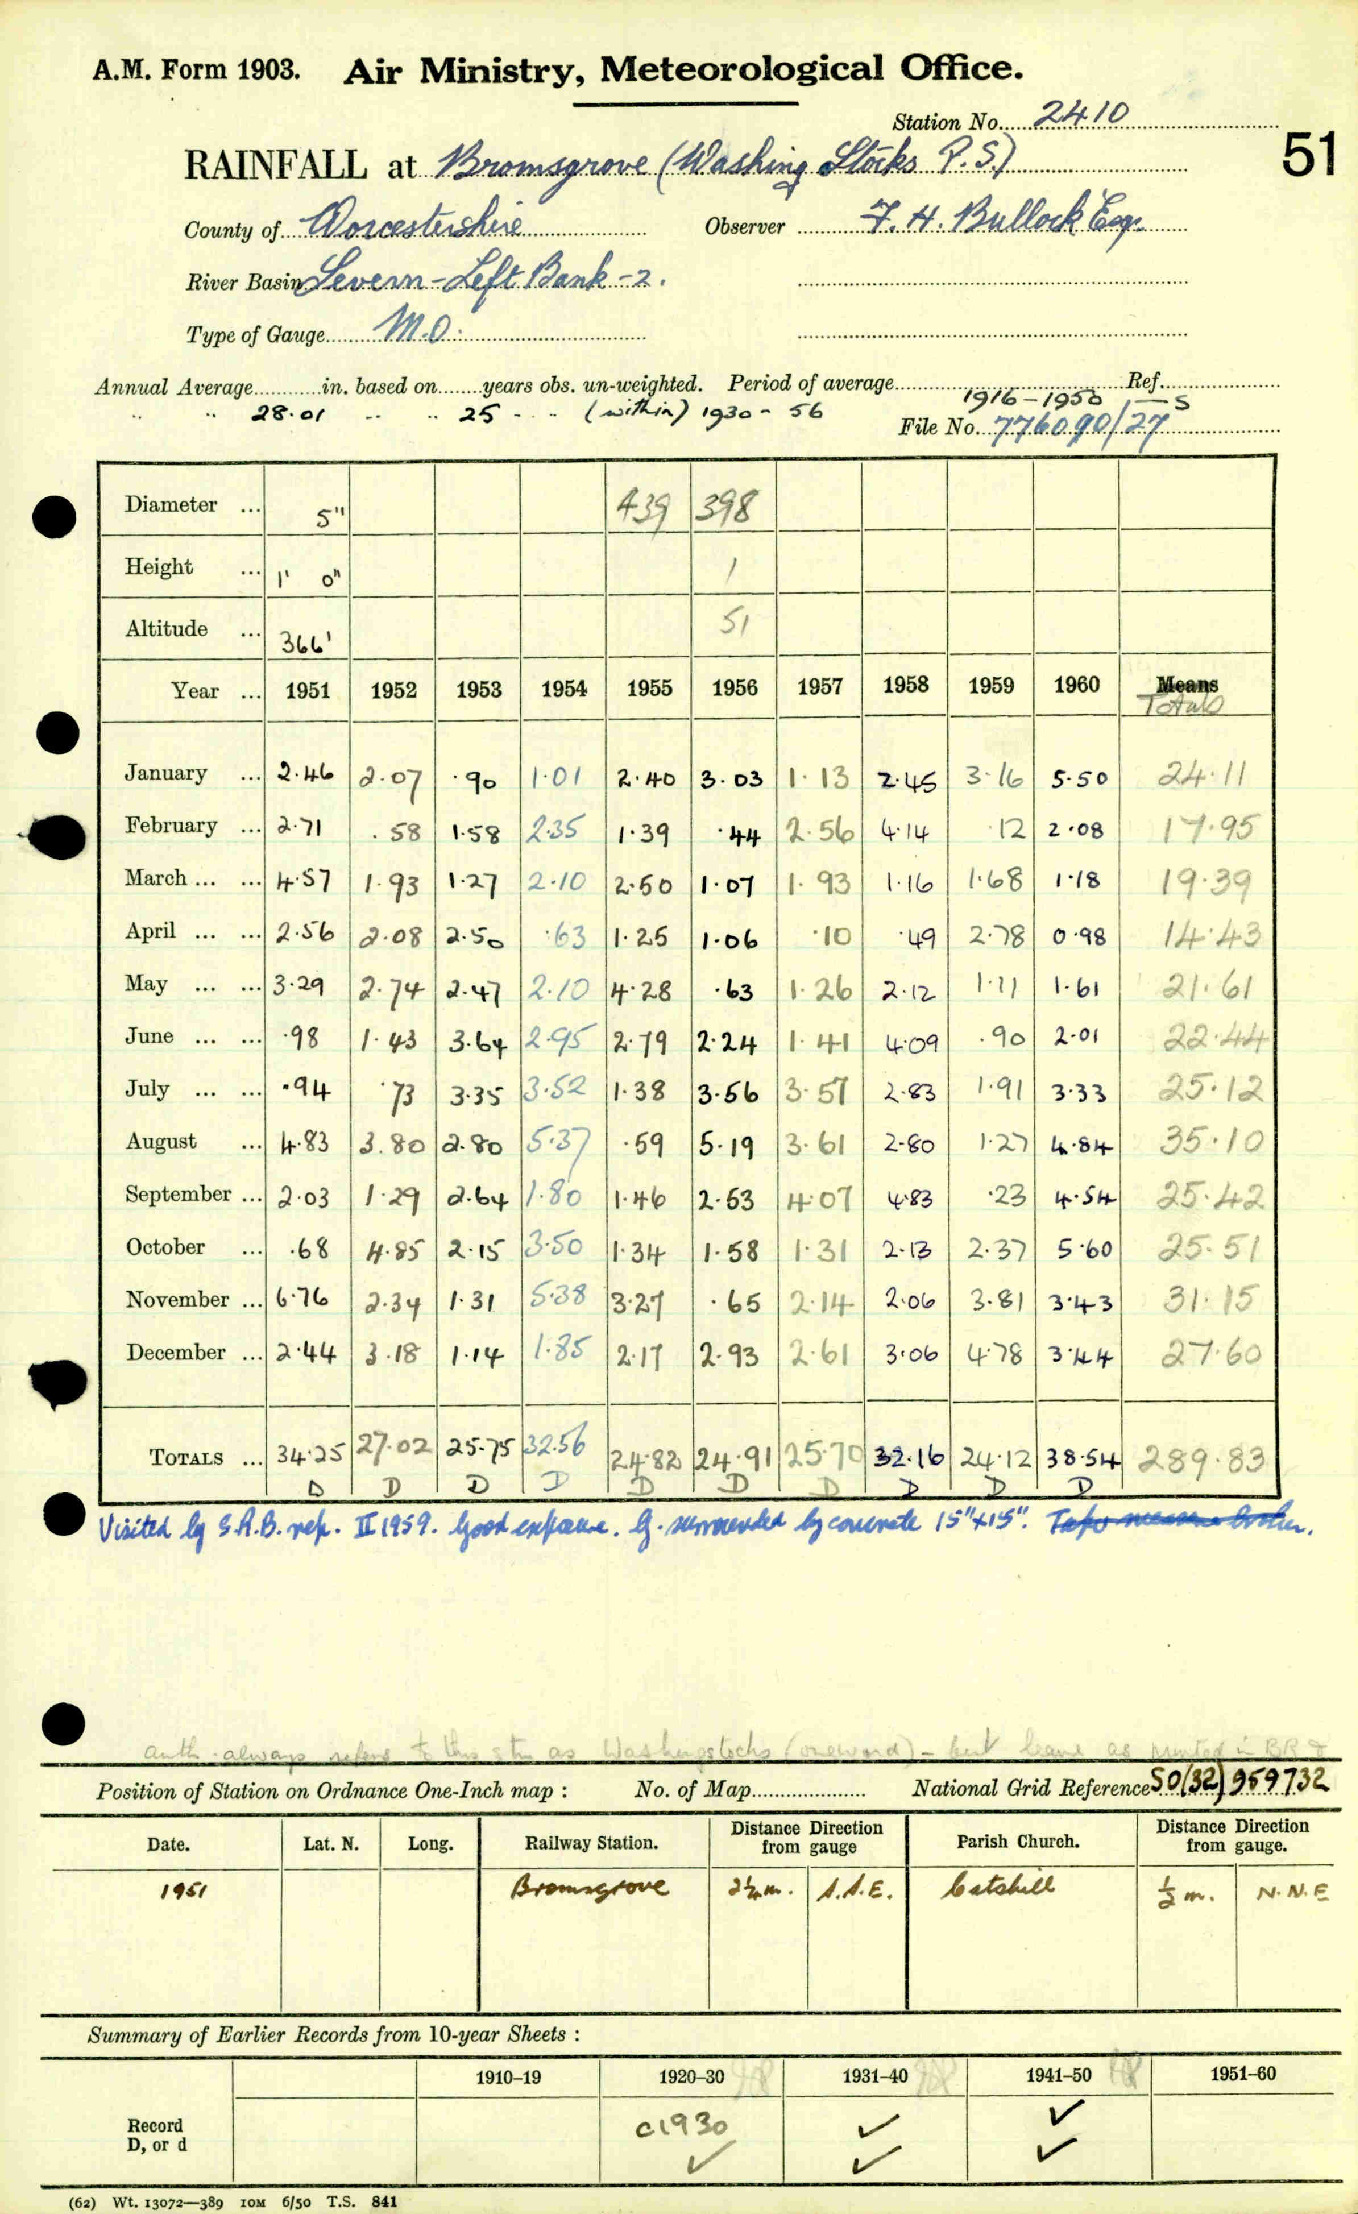 A.M. Form 1903. Air Ministry, Meteorological Office.
Station No. 2410
51
RAINFALL at Bromsgrove (Washing Stocks P.S.)
County of Worcestershire Observer F. H. Bullock Esq.
River Basin Severn - Left Bank - 2.
Type of Gauge M.O.
Annual Average in. based on years obs. un-weighted. Period of average 1916-1950 Ref. S
" " 28.01 " " 25 " " (within) 1930-56
File No. 776090/27
Diameter ... 5" 439 398
Height ... 1' 0" 1
Altitude ... 366' 51
Year ... 1951 1952 1953 1954 1955 1956 1957 1958 1959 1960 Means Totals
January ... 2.46 2.07 .90 1.01 2.40 3.03 1.13 2.45 3.16 5.50 24.11
February ... 2.71 .58 1.58 2.35 1.39 .44 2.56 4.14 .12 2.08 17.95
March ... ... 4.57 1.93 1.27 2.10 2.50 1.07 1.93 1.16 1.68 1.18 19.39
April ... ... 2.56 2.08 2.50 .63 1.25 1.06 .10 .49 2.78 0.98 14.43
May ... ... 3.29 2.74 2.47 2.10 4.28 .63 1.26 2.12 1.11 1.61 21.61
June ... ... .98 1.43 3.64 2.95 2.79 2.24 1.41 4.09 .90 2.01 22.44
July ... ... .94 .73 3.35 3.52 1.38 3.56 3.57 2.83 1.91 3.33 25.12
August ... 4.83 3.80 2.80 5.37 .59 5.19 3.61 2.80 1.27 4.84 35.10
September ... 2.03 1.29 2.64 1.80 1.46 2.53 4.07 4.83 .23 4.54 25.42
October ... .68 4.85 2.15 3.50 1.34 1.58 1.31 2.13 2.37 5.60 25.51
November ... 6.76 2.34 1.31 5.38 3.27 .65 2.14 2.06 3.81 3.43 31.15
December ... 2.44 3.18 1.14 1.85 2.17 2.93 2.61 3.06 4.78 3.44 27.60
TOTALS ... 34.25 27.02 25.75 32.56 24.82 24.91 25.70 32.16 24.12 38.54 289.83
D D D D D D D D D D
Visited by S.R.B. rep. II 1959. Good exposure. G. surrounded by concrete 15"x15". Tape measure broken.
auth. always refers to this stn as Washingstocks (oneword) - but leave as printed in BR
Position of Station on Ordnance One-Inch map : No. of Map National Grid Reference SO(32) 959732
Date. Lat. N. Long. Railway Station. Distance Direction from gauge Parish Church. Distance Direction from gauge.
1951 Bromsgrove 2¼m. S.S.E. Catshill ½ m. N.N.E
Summary of Earlier Records from 10-year Sheets :
1910-19 1920-30 1931-40 1941-50 1951-60
Record c1930 ✓ ✓
D, or d ✓ ✓ ✓
(62) Wt. 13072—389 10M 6/50 T.S. 841